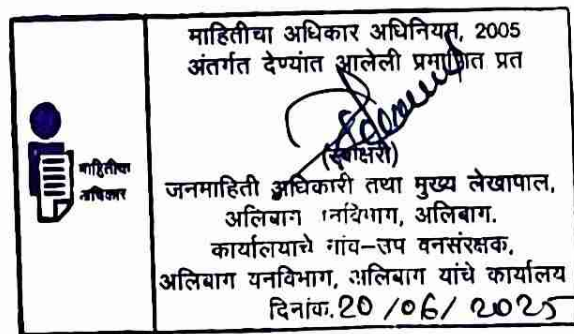 माहितीचा अधिकार अधिनियम, 2005
अंतर्गत देण्यांत आलेली प्रमाणित प्रत
(स्वाक्षरी)
माहितीचा
अधिकार
जनमाहिती अधिकारी तथा मुख्य लेखापाल,
अलिबाग वनविभाग, अलिबाग.
कार्यालयाचे नांव-उप वनसंरक्षक,
अलिबाग वनविभाग, अलिबाग यांचे कार्यालय
दिनांक. 20/06/2025